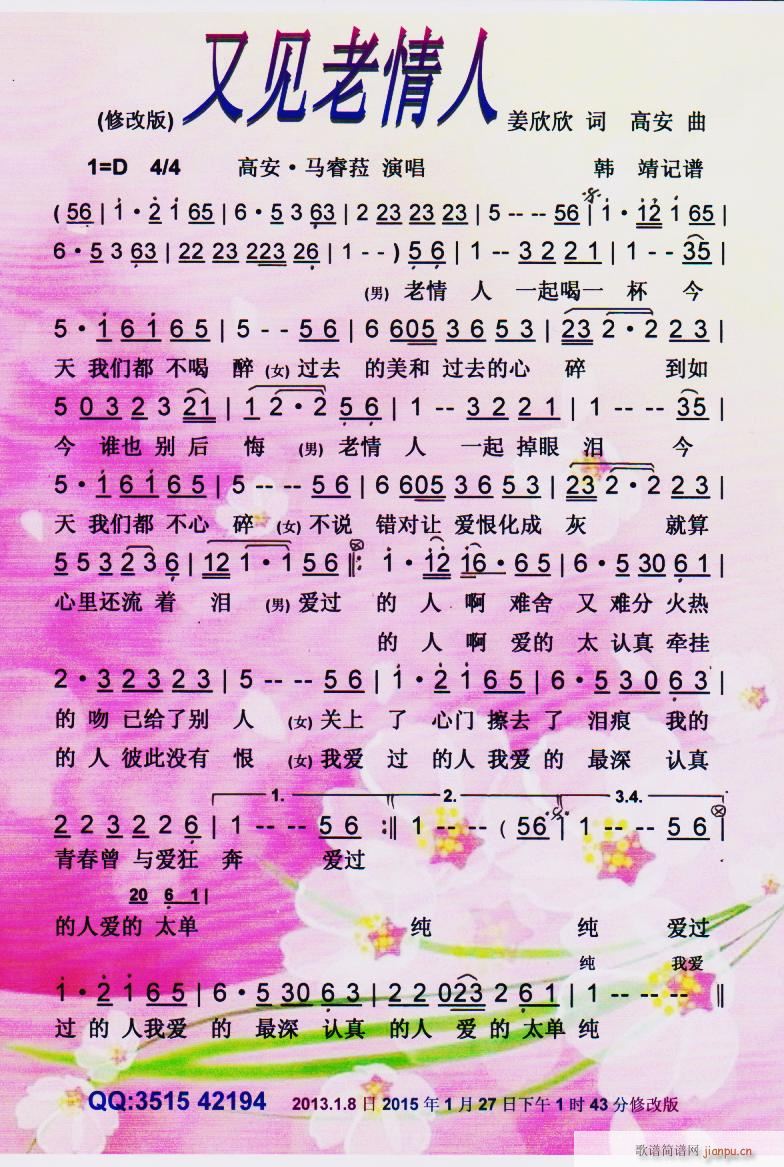 又见老情人
(修改版) 姜欣欣 词 高安 曲
1=D 4/4 高安·马睿菈 演唱 韩 靖记谱
( 56 | 1 · 2 1 65 | 6 · 5 3 63 | 2 23 23 23 | 5 -- -- 56 | 1 · 12 1 65 |
6 · 5 3 63 | 22 23 223 26 | 1 -- ) 5 6 | 1 -- 3 2 2 1 | 1 -- 35 |
(男) 老情 人 一起喝一 杯 今
5 · 1 6 1 6 5 | 5 - - 5 6 | 6 605 3 6 5 3 | 23 2 · 2 2 3 |
天 我们都 不喝 醉 (女) 过去 的美和 过去的心 碎 到如
5 0 3 2 3 21 | 1 2 · 2 5 6 | 1 -- 3 2 2 1 | 1 -- 35 |
今 谁也 别 后 悔 (男) 老情 人 一起 掉眼 泪 今
5 · 1 6 1 6 5 | 5 -- -- 5 6 | 6 605 3 6 5 3 | 23 2 · 2 2 3 |
天 我们都 不心 碎 (女) 不说 错对让 爱恨化成 灰 就算
5 5 3 2 3 6 | 12 1 · 1 5 6 :‖: 1 · 12 16 · 6 5 | 6 · 5 30 6 1 |
心里还流 着 泪 (男) 爱过 的 人 啊 难舍 又 难分 火热
的 人 啊 爱的 太 认真 牵挂
2 · 3 2 3 2 3 | 5 -- -- 5 6 | 1 · 2 1 6 5 | 6 · 5 3 0 6 3 |
的 吻 已给了别 人 (女) 关上 了 心门 擦去 了 泪痕 我的
的 人 彼此没有 恨 (女) 我爱 过 的人 我爱 的 最深 认真
1. 2. 3.4.
2 2 3 2 2 6 | 1 -- -- 5 6 :‖ 1 -- -- ( 56 | 1 -- -- 5 6 |
青春曾 与爱狂 奔 爱过
20 6 1 |
的人爱的 太单 纯 纯 爱过
纯 我爱
1 · 2 1 6 5 | 6 · 5 30 6 3 | 2 2 023 2 6 1 | 1 -- -- -- ‖
过 的 人我爱 的 最深 认真 的人 爱 的 太单 纯
QQ:3515 42194 2013.1.8 日 2015 年 1 月 27 日下午 1 时 43 分修改版
歌谱简谱网 jianpu.cn